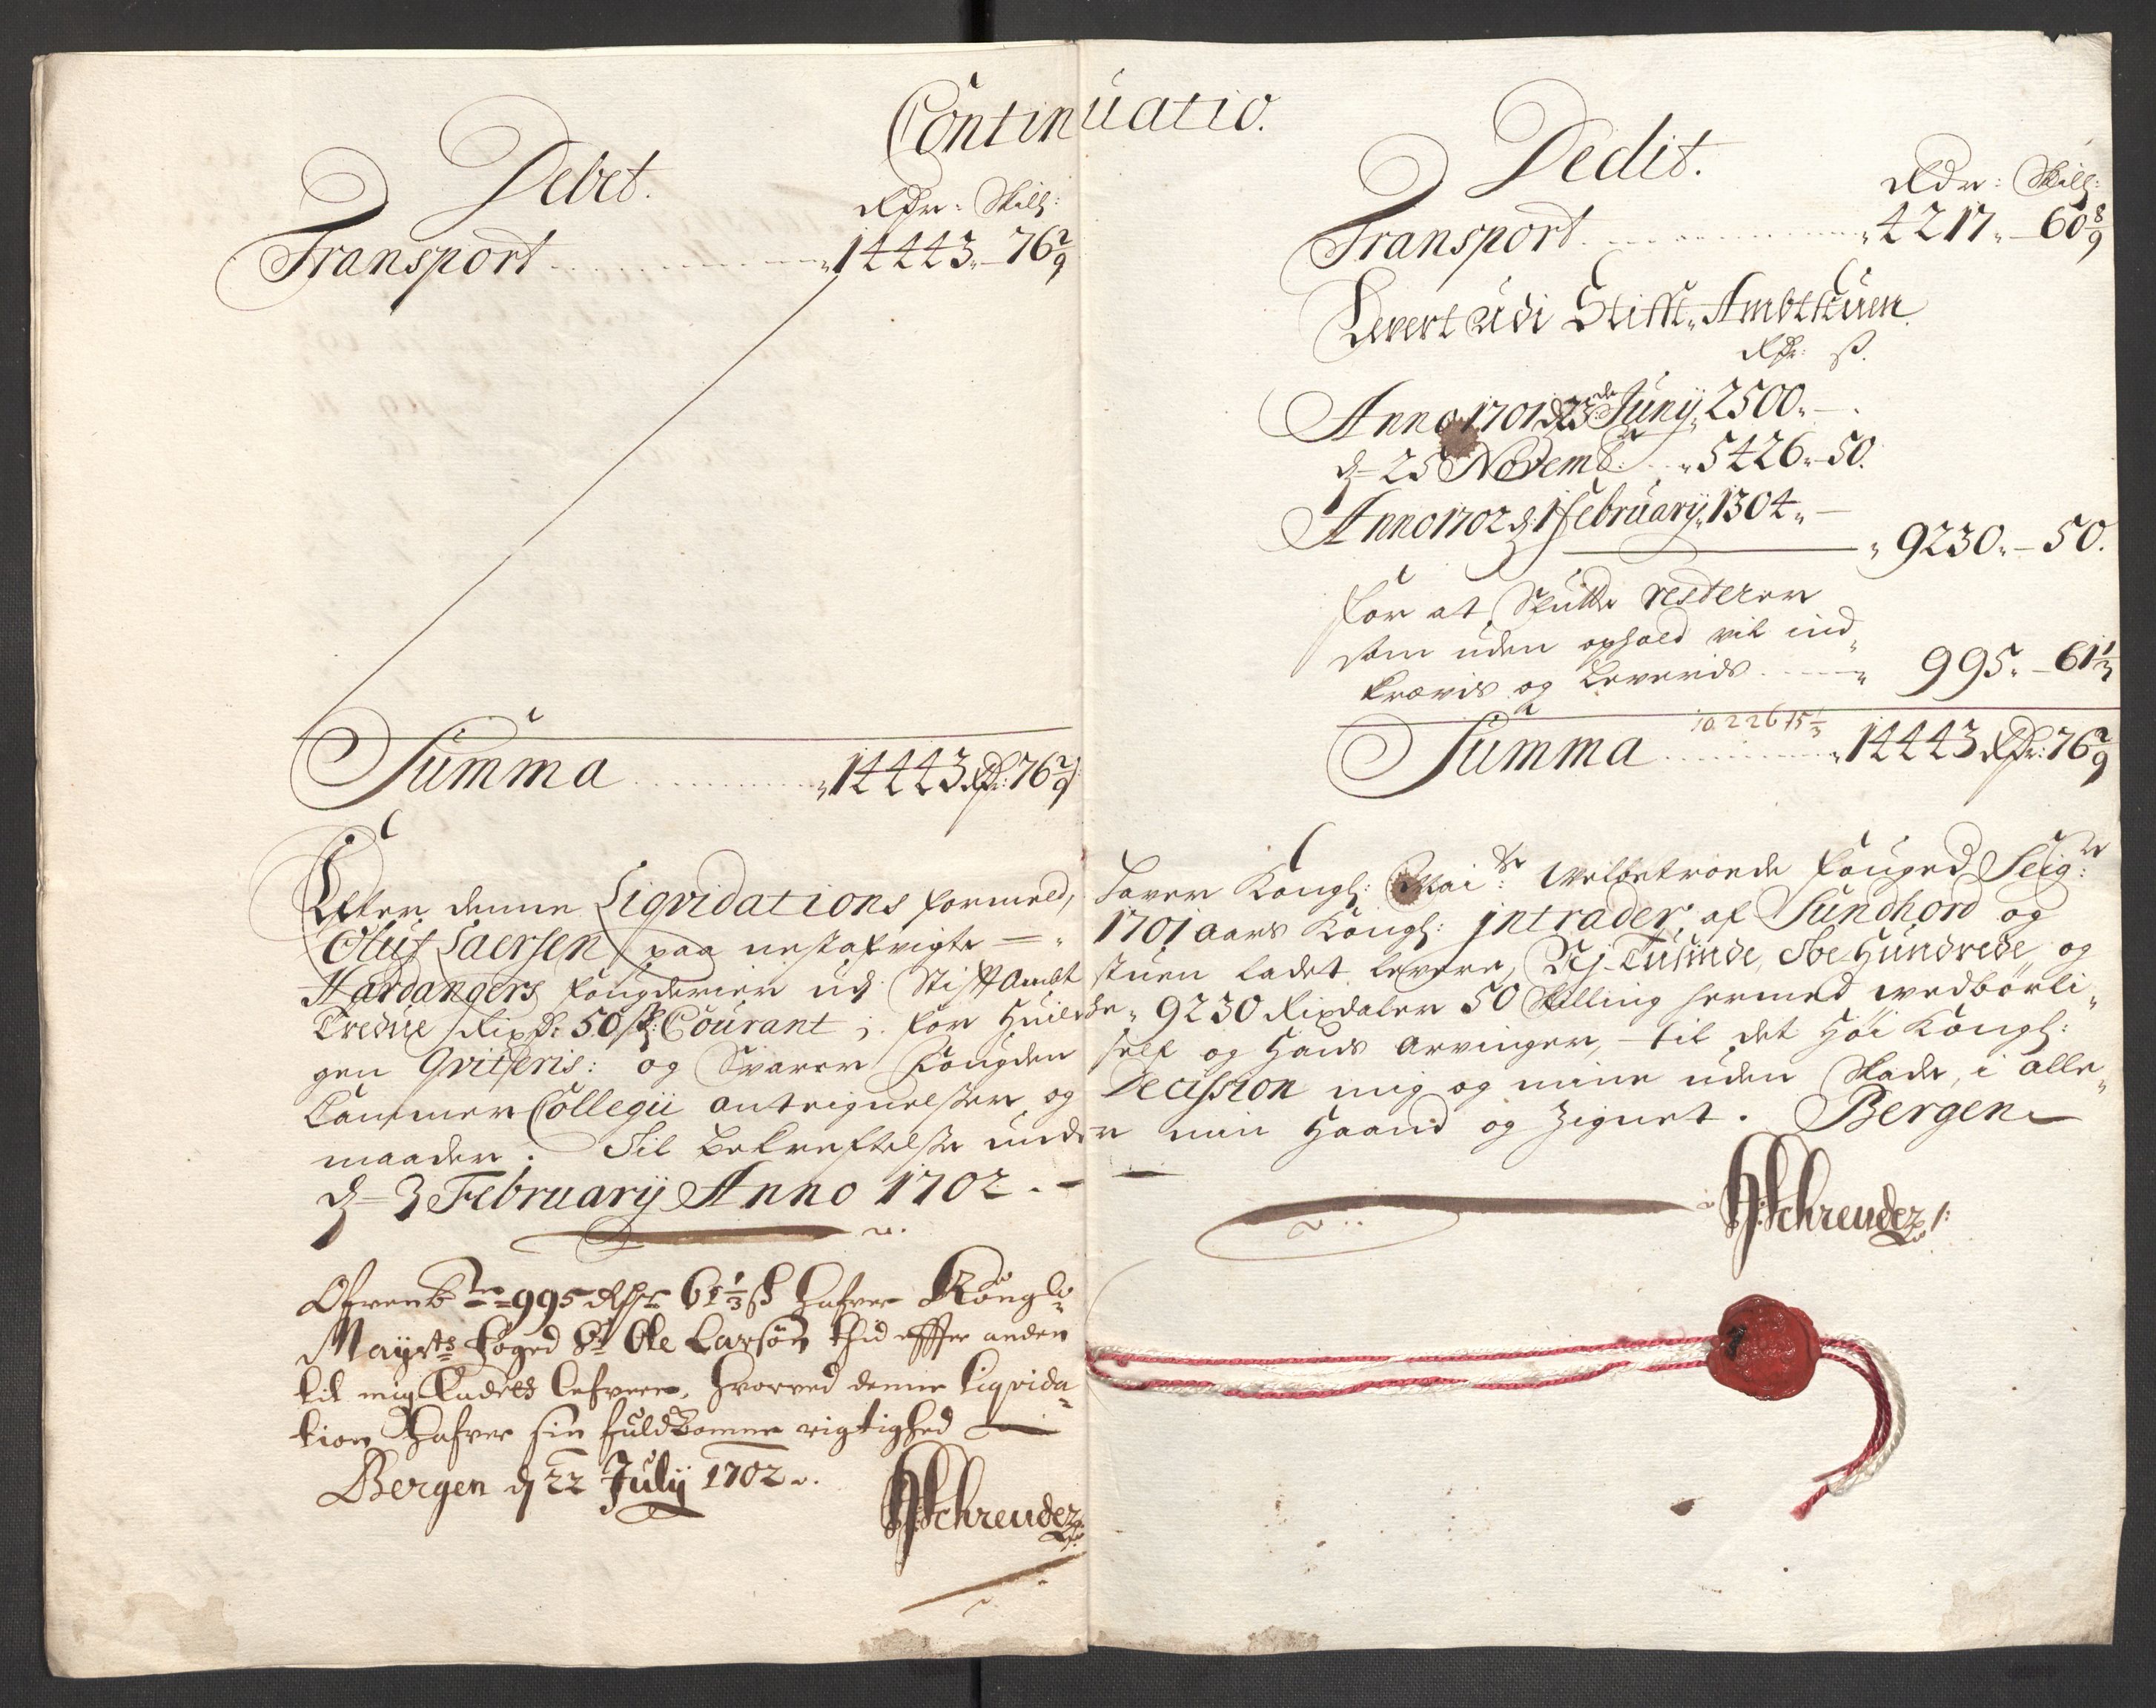 Continuatio.
Debet.
Rdr: Skill:
Transport 14443 - 76 2/9
Summa 14443 Rdr: 76 2/9
Dedit.
Rdr: Skill:
Transport 4217 - 60 8/9
Levert udi Stifft Ambtstuen
Rdr: ß.
Anno 1701 d 23de Junij 2500. -
d 25 Novembr. 5426 - 50.
Anno 1702 d. 1 february 1304 -
9230 - 50.
for at Slutte resterer
som uden ophold vil ind
kræves og Leverids 995 - 61 1/3
10226 15 1/3
Summa 14443 Rdr: 76 2/9
Efter denne Liqvidations formeld, haver Kongl: Maits: Velbetroede fouged Seigr:
Oluf Laersen paa nestafvigte 1701 aars Kongl: jntrader, af Sundhord og
Hardangers fougderier udj Stifft Ambt stuen ladet levere, Nj Tusinde, Toe Hundrede og
Tredue Rixdr: 50 ß: Courant; for Huilcke 9230 Rixdaler 50 Skilling hermed vedbørli
gen Qvitteris: og Svarer fougden self og Hands Arvinger, til det Høi Kongl:
Cammer Collegii Antegnelser og Decission mig og mine uden Skade, i alle
maader. Til bekreftelse under min Haand og Zignet. Bergen
d 3 February Anno 1702.
H: Schreuder
Ofrenbte 995 Rdr 61 1/3 ß hafver Kongl:
Mayts foged Sr Ole Larsøn tid effter anden
til mig ladet lefvere, hvorved denne Liqvida
tion hafver sin fuldkomme rigtighed
Bergen d 22 Julij 1702.
H Schreuder